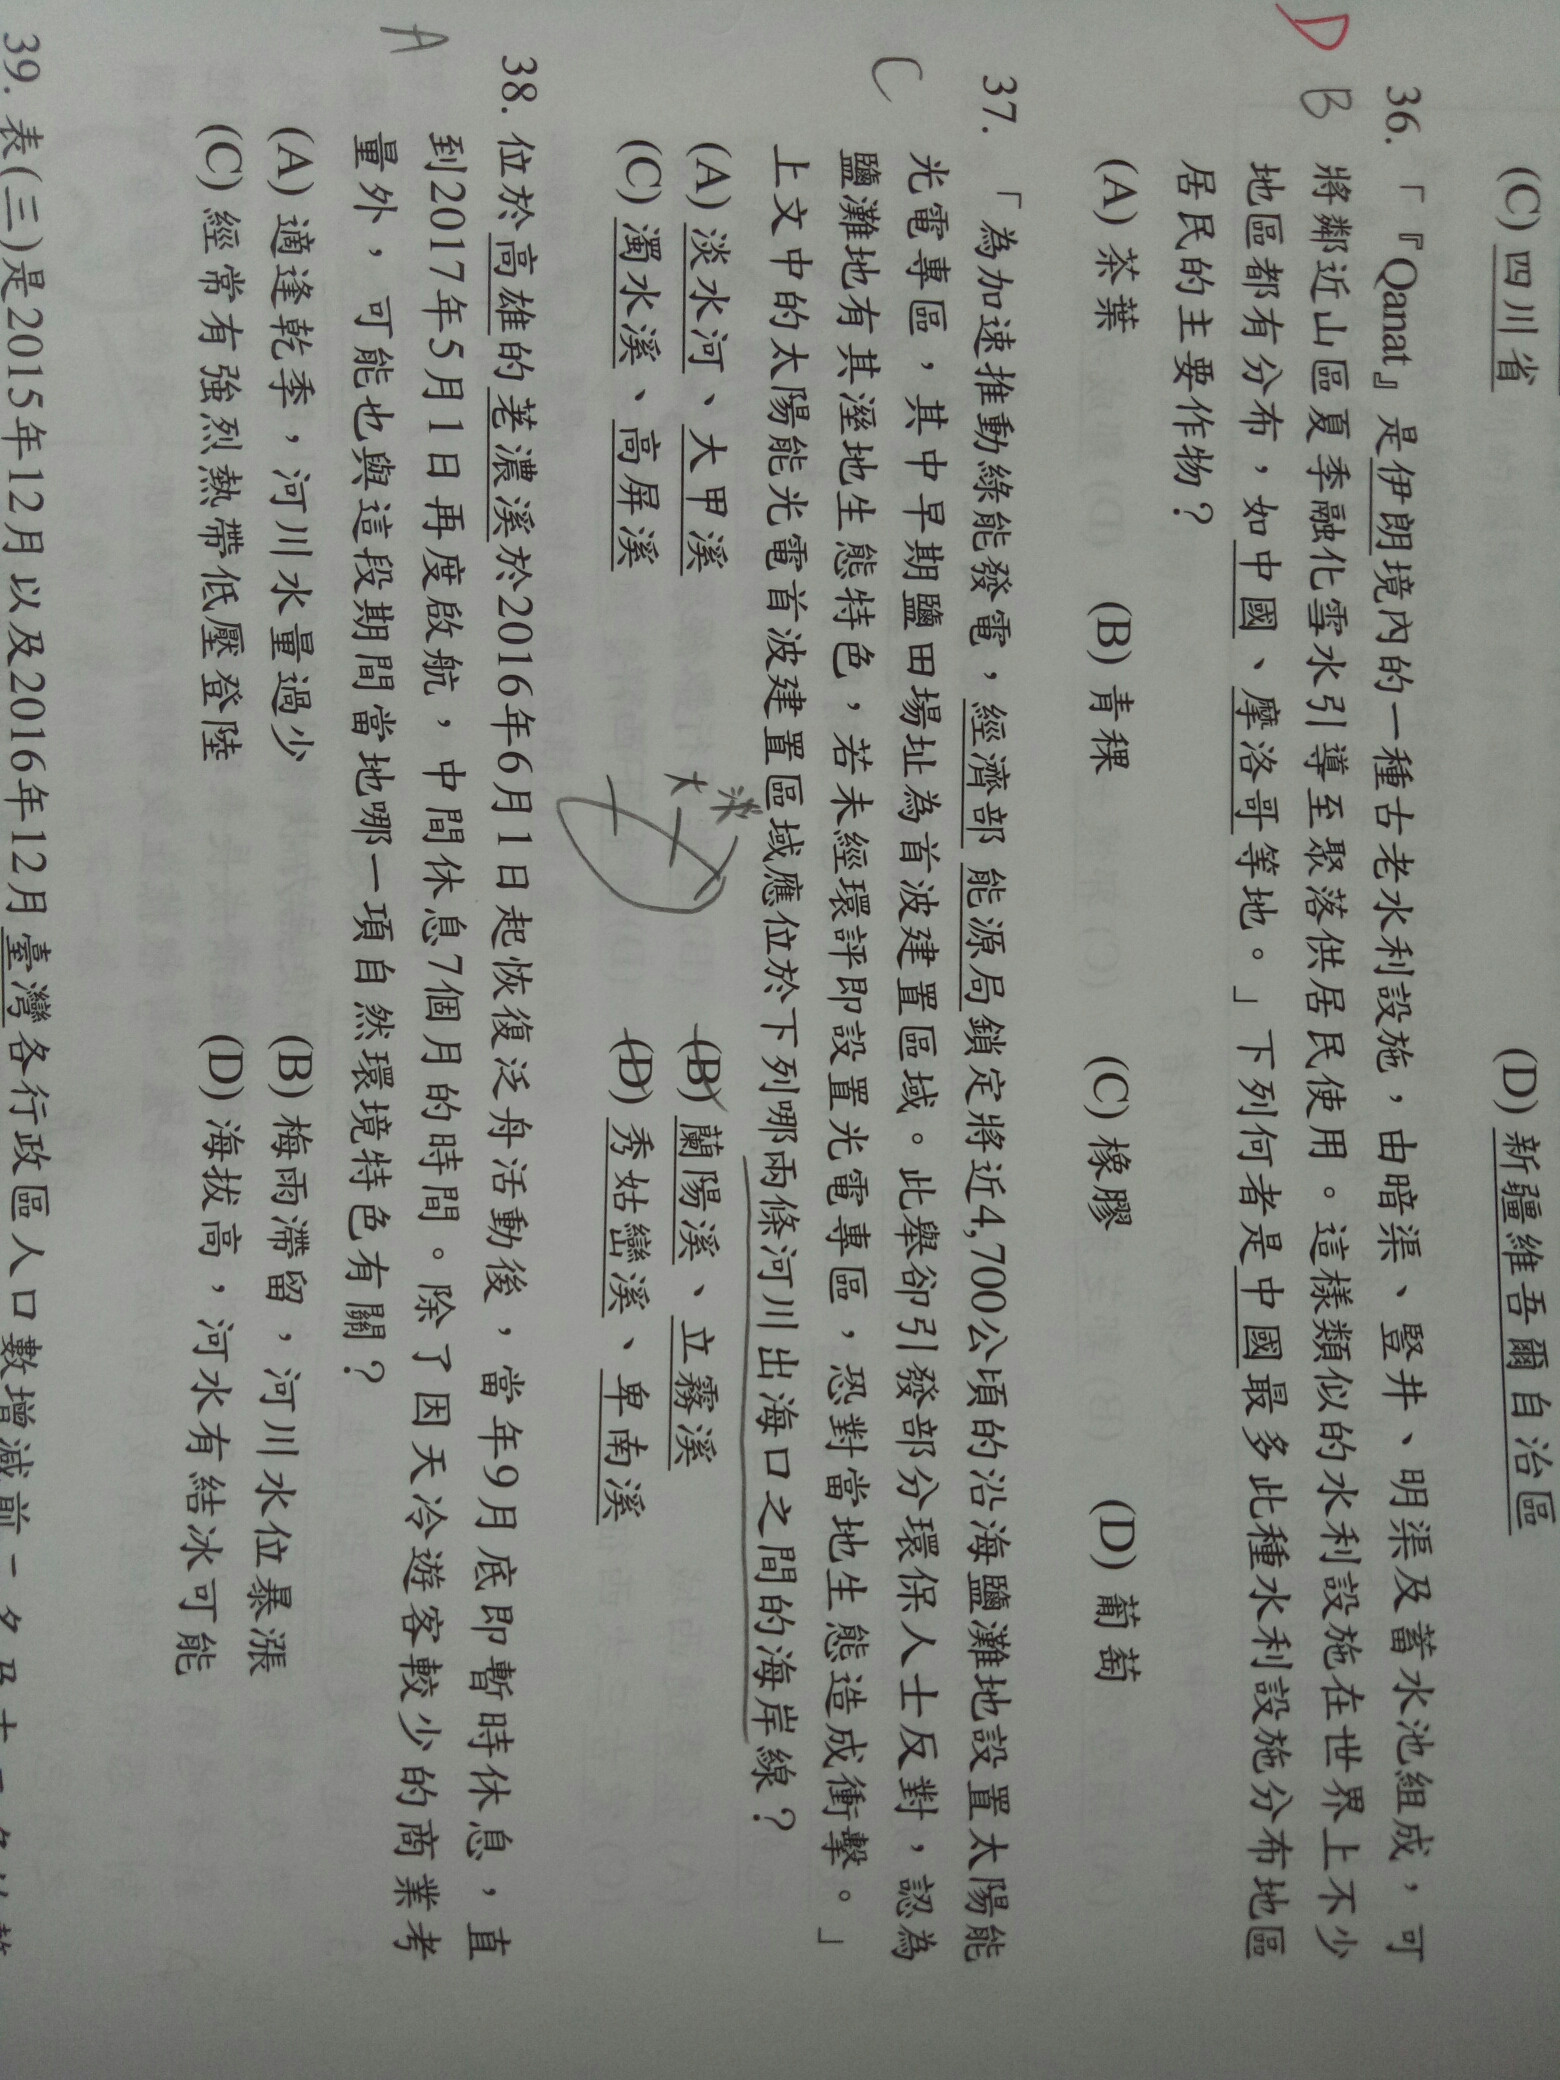 (C) 四川省 (D) 新疆維吾爾自治區
36. 「『Qanat』是伊朗境內的一種古老水利設施，由暗渠、豎井、明渠及蓄水池組成，可
D B 將鄰近山區夏季融化雪水引導至聚落供居民使用。這樣類似的水利設施在世界上不少
地區都有分布，如中國、摩洛哥等地。」下列何者是中國最多此種水利設施分布地區
居民的主要作物？
(A) 茶葉 (B) 青稞 (C) 橡膠 (D) 葡萄
37. 「為加速推動綠能發電，經濟部 能源局鎖定將近4,700公頃的沿海鹽灘地設置太陽能
C 光電專區，其中早期鹽田場址為首波建置區域。此舉卻引發部分環保人士反對，認為
鹽灘地有其溼地生態特色，若未經環評即設置光電專區，恐對當地生態造成衝擊。」
上文中的太陽能光電首波建置區域應位於下列哪兩條河川出海口之間的海岸線？
淡
大
(A) 淡水河、大甲溪 (B) 蘭陽溪、立霧溪
(C) 濁水溪、高屏溪 (D) 秀姑巒溪、卑南溪
38. 位於高雄的荖濃溪於2016年6月1日起恢復泛舟活動後，當年9月底即暫時休息，直
A 到2017年5月1日再度啟航，中間休息7個月的時間。除了因天冷遊客較少的商業考
量外，可能也與這段期間當地哪一項自然環境特色有關？
(A) 適逢乾季，河川水量過少 (B) 梅雨滯留，河川水位暴漲
(C) 經常有強烈熱帶低壓登陸 (D) 海拔高，河水有結冰可能
39. 表(三)是2015年12月以及2016年12月臺灣各行政區人口數增減前